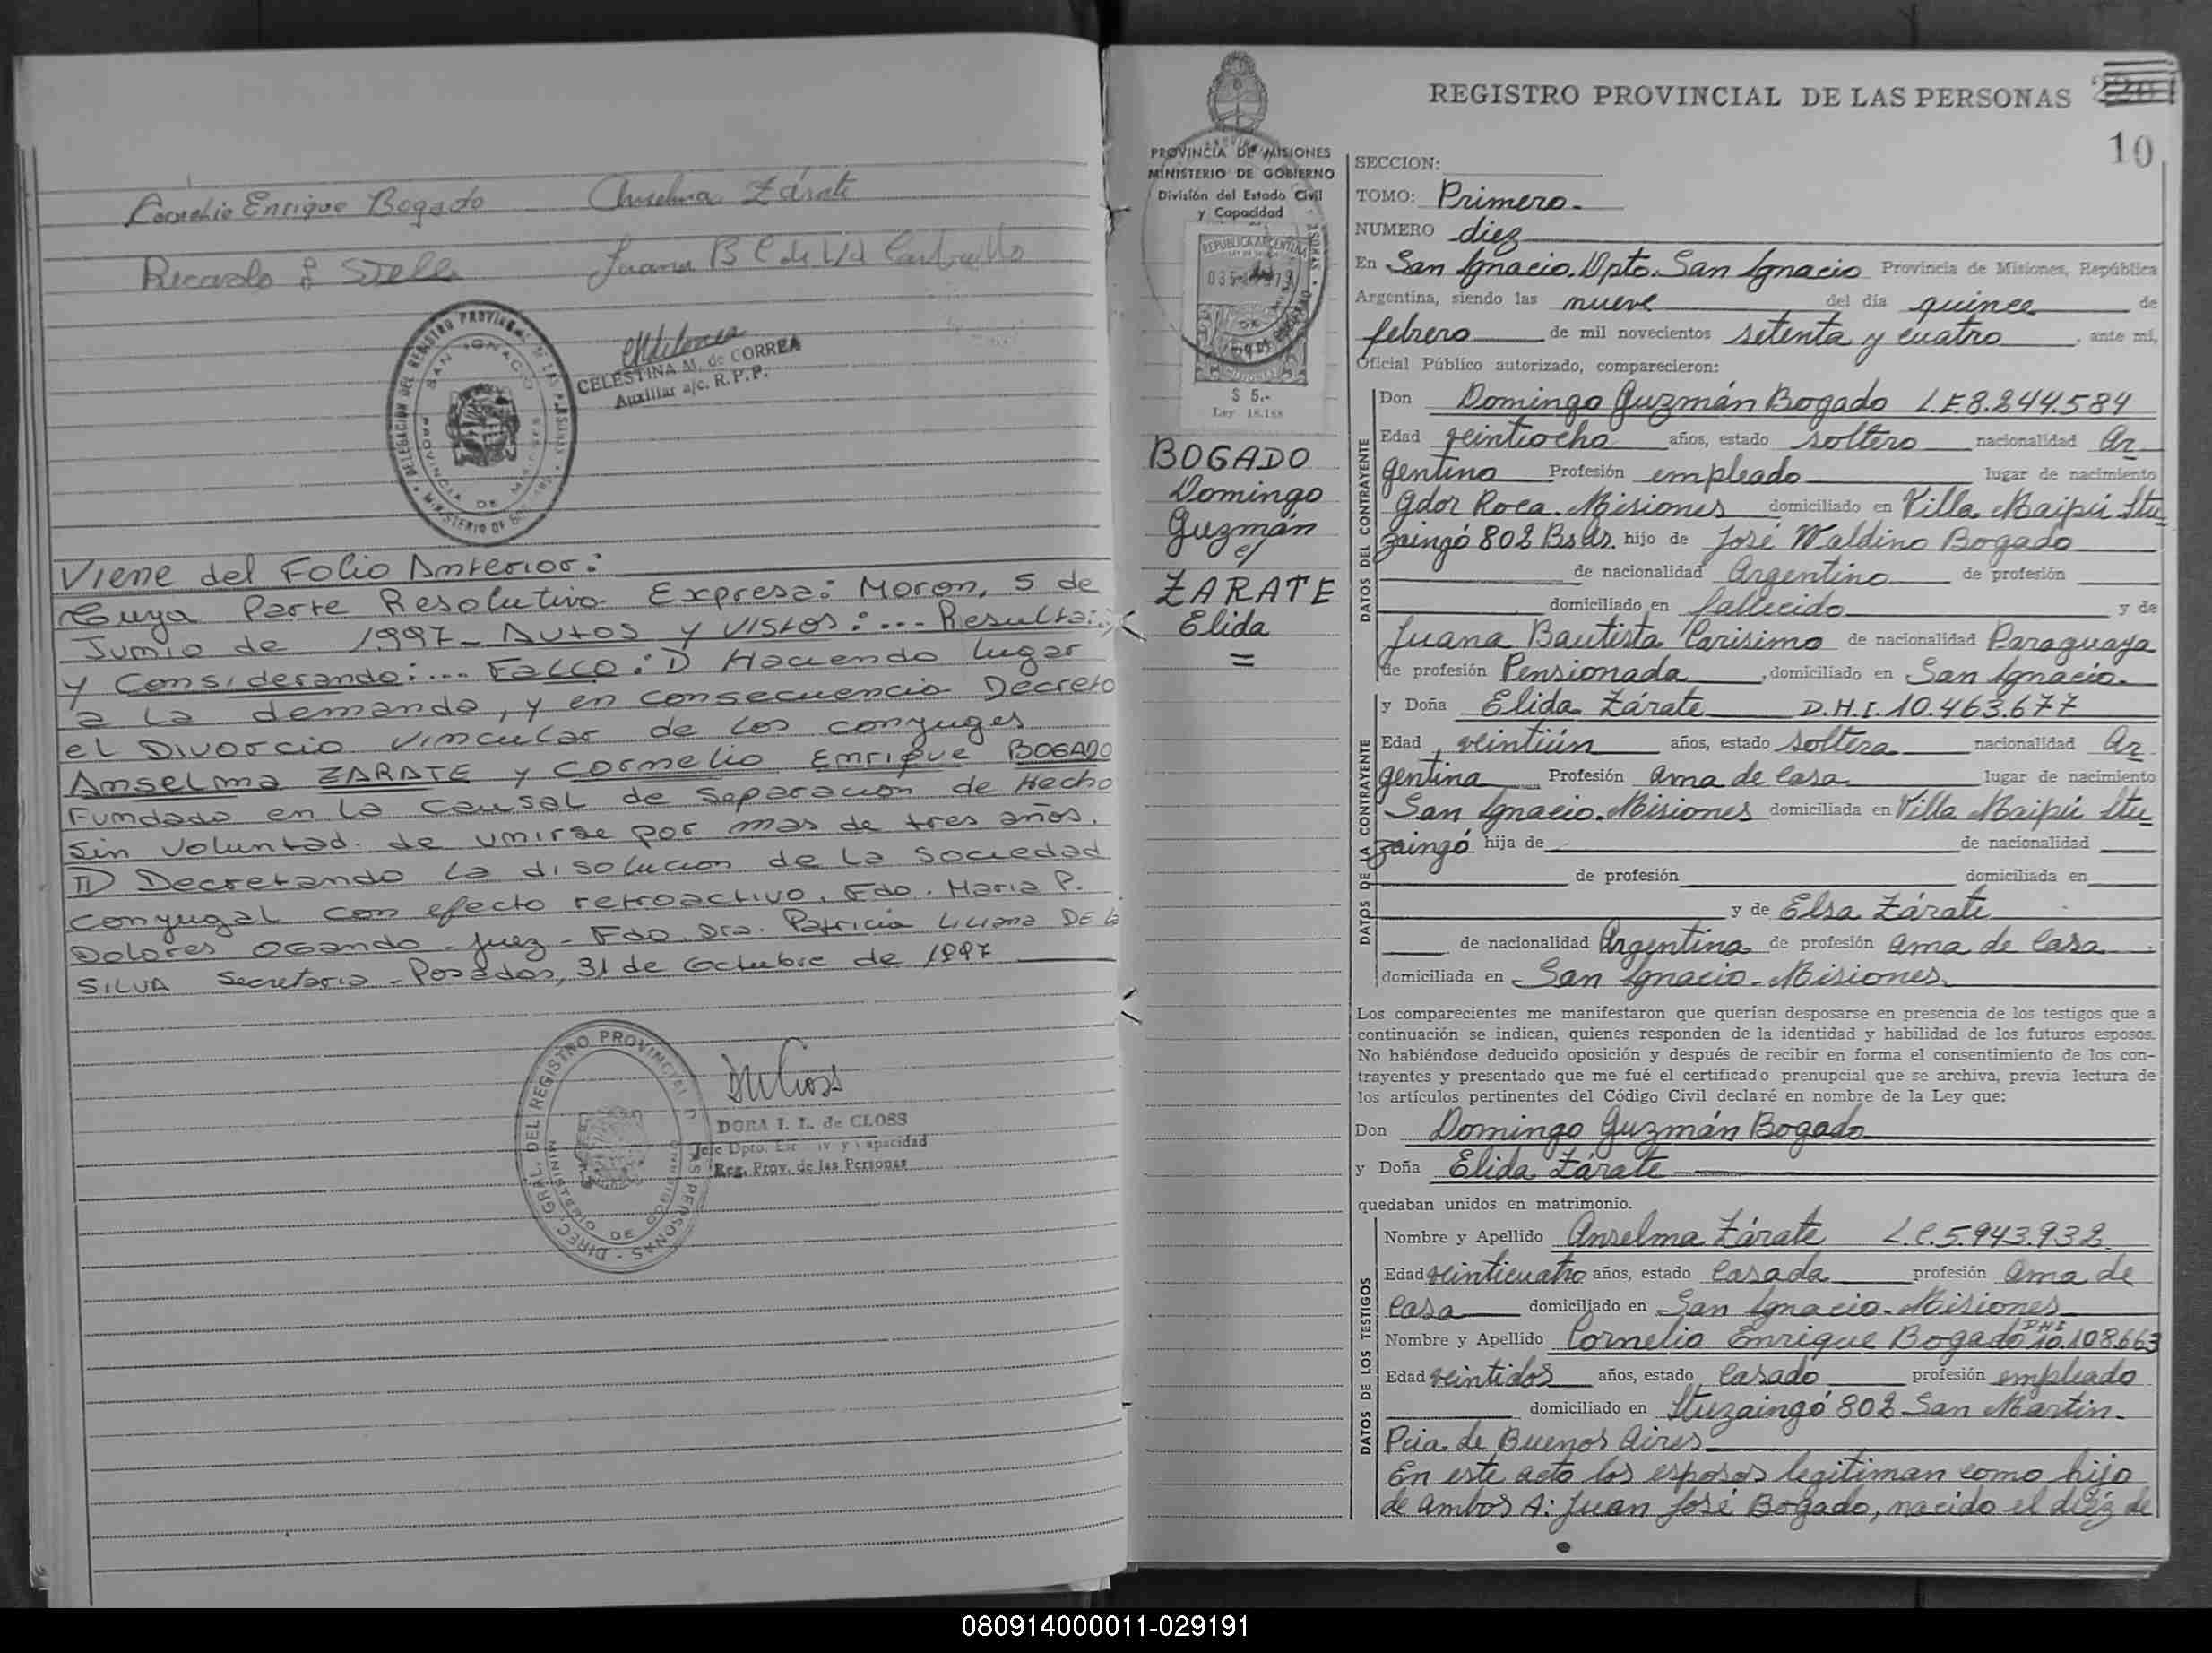 Cornelio Enrique Bogado
Anselma Zárate
Ricardo
Juana B C de Vda
DELEGACION DEL REGISTRO PROVINCIAL DE LAS PERSONAS
SAN IGNACIO
PROVINCIA DE MISIONES
MINISTERIO DE GOB
CELESTINA M. de CORREA
Auxiliar a/c. R. P. P.
Viene del Folio Anterior:
Cuya Parte Resolutiva Expresa: Moron, 5 de
Junio de 1997- Autos y Vistos: ... Resulta:
y Considerando: ... Fallo: I) Haciendo lugar
a la demanda, y en consecuencia Decreto
el Divorcio vincular de los conyuges
Anselma ZARATE y Cornelio Enrique BOGADO
Fundado en la causal de Separacion de Hecho
sin voluntad de unirse por mas de tres años.
II) Decretando la disolucion de la sociedad
conyugal con efecto retroactivo. Fdo. Maria P.
Dolores Ogando - Juez - Fdo. Dra. Patricia Liliana DE la
SILVA Secretaria - Posadas, 31 de Octubre de 1997
DIREC. GRAL. DEL REGISTRO PROVINCIAL DE LAS PERSONAS
MINISTERIO DE GOBIERNO
DORA I. L. de CLOSS
Jefe Dpto. Est. Civ y Capacidad
Reg. Prov. de las Personas
REGISTRO PROVINCIAL DE LAS PERSONAS
10
PROVINCIA DE MISIONES
MINISTERIO DE GOBIERNO
División del Estado Civil
y Capacidad
REPUBLICA ARGENTINA
MISIONES
$ 5.-
Ley 18.188
BOGADO
Domingo
Guzmán
c/
ZARATE
Elida
=
SECCION:
TOMO: Primero.
NUMERO diez
En San Ignacio. Dpto. San Ignacio Provincia de Misiones, República
Argentina, siendo las nueve del día quince de
febrero de mil novecientos setenta y cuatro, ante mí,
Oficial Público autorizado, comparecieron:
DATOS DEL CONTRAYENTE
Don Domingo Guzmán Bogado L.E 8.244.584
Edad veintiocho años, estado soltero nacionalidad Ar
gentino Profesión empleado lugar de nacimiento
Gdor Roca. Misiones domiciliado en Villa Maipú Itu
zaingó 802 Bs As. hijo de José Waldino Bogado
de nacionalidad Argentino de profesión
domiciliado en fallecido y de
Juana Bautista Carisimo de nacionalidad Paraguaya
de profesión Pensionada, domiciliado en San Ignacio.
DATOS DE LA CONTRAYENTE
y Doña Elida Zárate D.N.I. 10.463.677
Edad veintiún años, estado soltera nacionalidad Ar
gentina Profesión ama de casa lugar de nacimiento
San Ignacio. Misiones domiciliada en Villa Maipú Itu
zaingó hija de de nacionalidad
de profesión domiciliada en
y de Elsa Zárate
de nacionalidad Argentina de profesión ama de casa
domiciliada en San Ignacio - Misiones.
Los comparecientes me manifestaron que querían desposarse en presencia de los testigos que a
continuación se indican, quienes responden de la identidad y habilidad de los futuros esposos.
No habiéndose deducido oposición y después de recibir en forma el consentimiento de los con-
trayentes y presentado que me fué el certificado prenupcial que se archiva, previa lectura de
los artículos pertinentes del Código Civil declaré en nombre de la Ley que:
Don Domingo Guzmán Bogado
y Doña Elida Zárate
quedaban unidos en matrimonio.
DATOS DE LOS TESTIGOS
Nombre y Apellido Anselma Zárate L.C. 5.943.932
Edad veinticuatro años, estado casada profesión ama de
casa domiciliado en San Ignacio - Misiones
Nombre y Apellido Cornelio Enrique Bogado DNI 10.108.663
Edad veintidos años, estado casado profesión empleado
domiciliado en Ituzaingó 802 San Martin.
Pcia de Buenos Aires
En este acto los esposos legitiman como hijo
de ambos A: Juan José Bogado, nacido el diez de
080914000011-029191